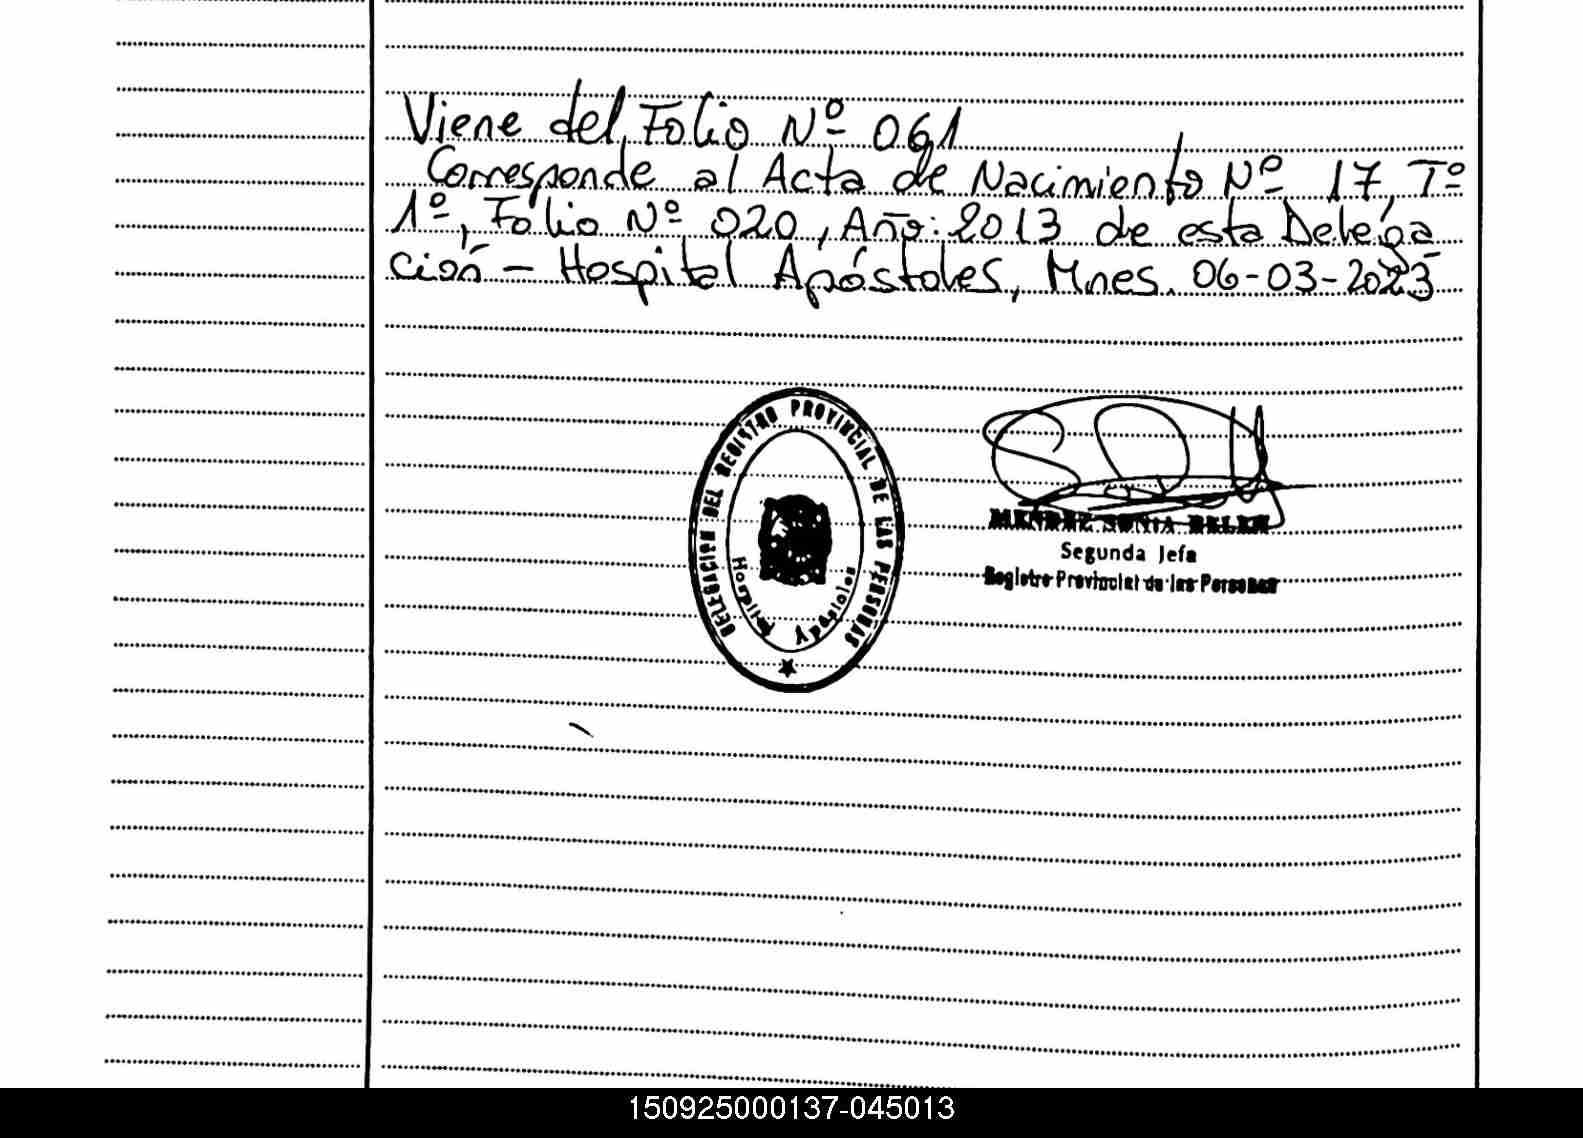 Viene del Folio Nº 061
Corresponde al Acta de Nacimiento Nº 17, Tº
1º, Folio Nº 020, Año: 2013 de esta Delega
ción - Hospital Apóstoles, Mnes. 06-03-2023
DELEGACION DEL REGISTRO PROVINCIAL DE LAS PERSONAS
Hospital Apóstoles
MENDEZ SONIA BELEN
Segunda Jefa
Registro Provincial de las Personas
150925000137-045013